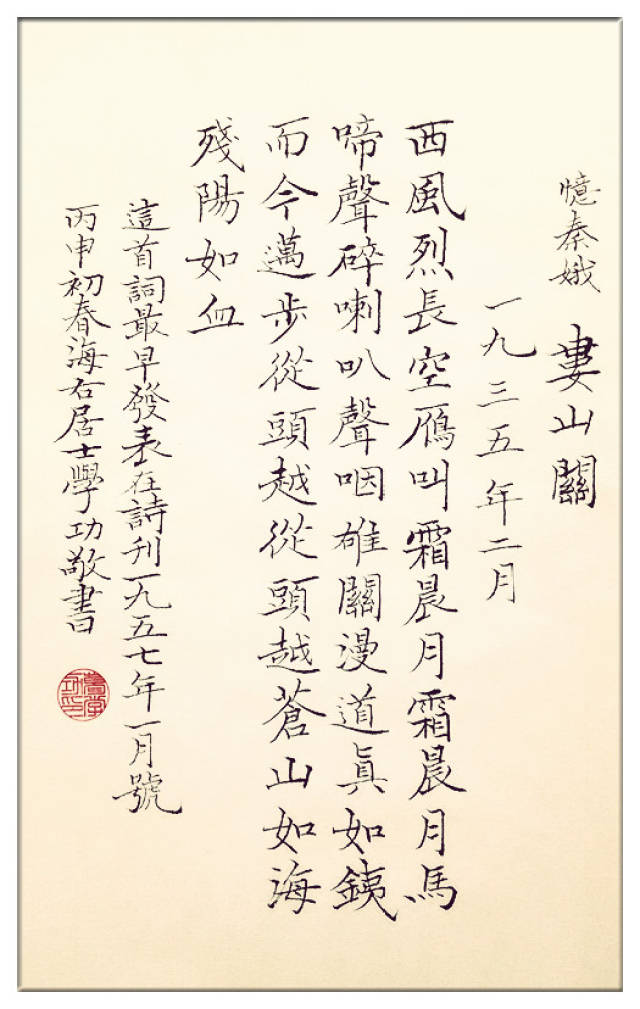 憶秦娥 婁山關
一九三五年二月
西風烈長空雁叫霜晨月霜晨月馬
啼聲碎喇叭聲咽雄關漫道真如銕
而今邁步從頭越從頭越蒼山如海
殘陽如血
這首詞最早發表在詩刊一九五七年一月號
丙申初春海右居士學功敬書